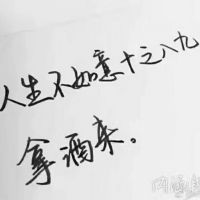 人生不如意十之八九
拿酒来。